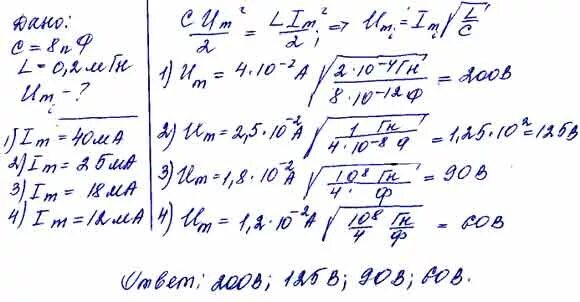 Дано:
C = 8пФ
L = 0,2мГн
Um_i - ?
1) Im = 40мА
2) Im = 25мА
3) Im = 18мА
4) Im = 12мА
CUm²/2 = LIm²/2; => Um_i = Im_i √(L/C)
1) Um = 4·10⁻²А √(2·10⁻⁴Гн / 8·10⁻¹²Ф) = 200В
2) Um = 2,5·10⁻²А √(1 Гн / 4·10⁻⁸ Ф) = 1,25·10² = 125В
3) Um = 1,8·10⁻²А √(10⁸ Гн / 4· Ф) = 90В
4) Um = 1,2·10⁻²А √(10⁸/4 Гн/Ф) = 60В
Ответ: 200В; 125В; 90В; 60В.